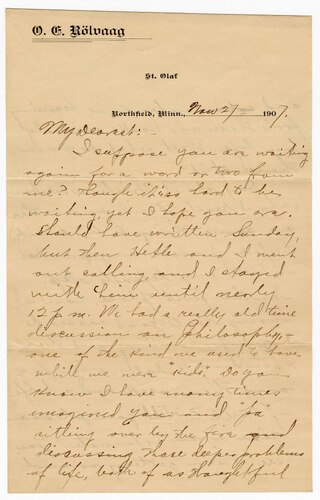 O. E. Rölvaag
St. Olaf
Northfield, Minn., Nov 27 1907.
My Dearest:-
I suppose you are waiting
again for a word or two from
me? Though it is so hard to be
waiting, yet I hope you are.
Should have written Sunday,
but then Hetle and I went
out calling, and I stayed
with him until nearly
12 p.m. We had a really old time
discussion on Philosophy,-
one of the kind we used to have
while we were "kids". Do you
know I have many times
imagined you and "pa"
sitting over by the fire and
discussing these deeper problems
of life, both of as thoughtful